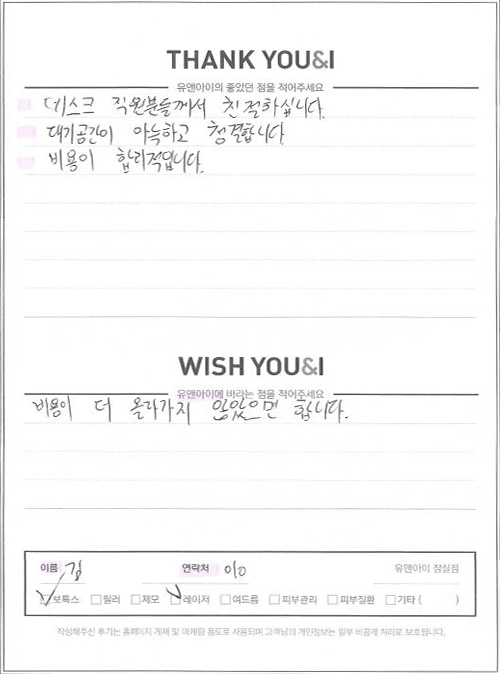 THANK YOU&I
유앤아이의 좋았던 점을 적어주세요
데스크 직원분들께서 친절하십니다.
대기공간이 아늑하고 청결합니다.
비용이 합리적입니다.
WISH YOU&I
유앤아이에 바라는 점을 적어주세요
비용이 더 올라가지 않았으면 합니다.
이름 김 연락처 010 유앤아이 잠실점
보톡스 필러 제모 레이저 여드름 피부관리 피부질환 기타 ( )
작성해주신 후기는 홈페이지 게재 및 마케팅 용도로 사용되며 고객님의 개인정보는 일부 비공개 처리로 보호됩니다.